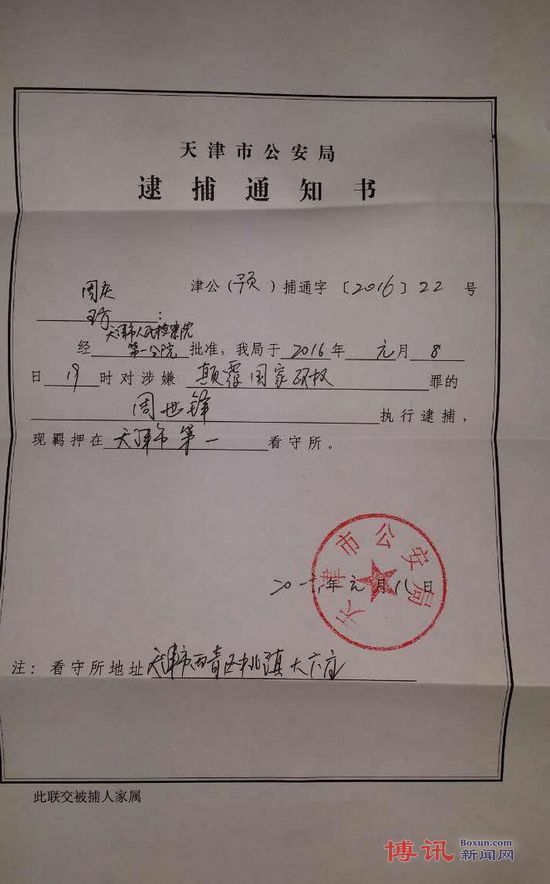 天津市公安局
逮捕通知书
津公(预)捕通字〔2016〕22号
周庆
:
天津市人民检察院
经 第一分院 批准，我局于 2016 年 元 月 8
日 19 时对涉嫌 颠覆国家政权 罪的
周世锋 执行逮捕，
现羁押在 天津市第一 看守所。
天津市公安局
二〇一六年元月八日
注：看守所地址 天津市西青区 镇大卞庄
此联交被捕人家属
博讯 Boxun.com
新闻网